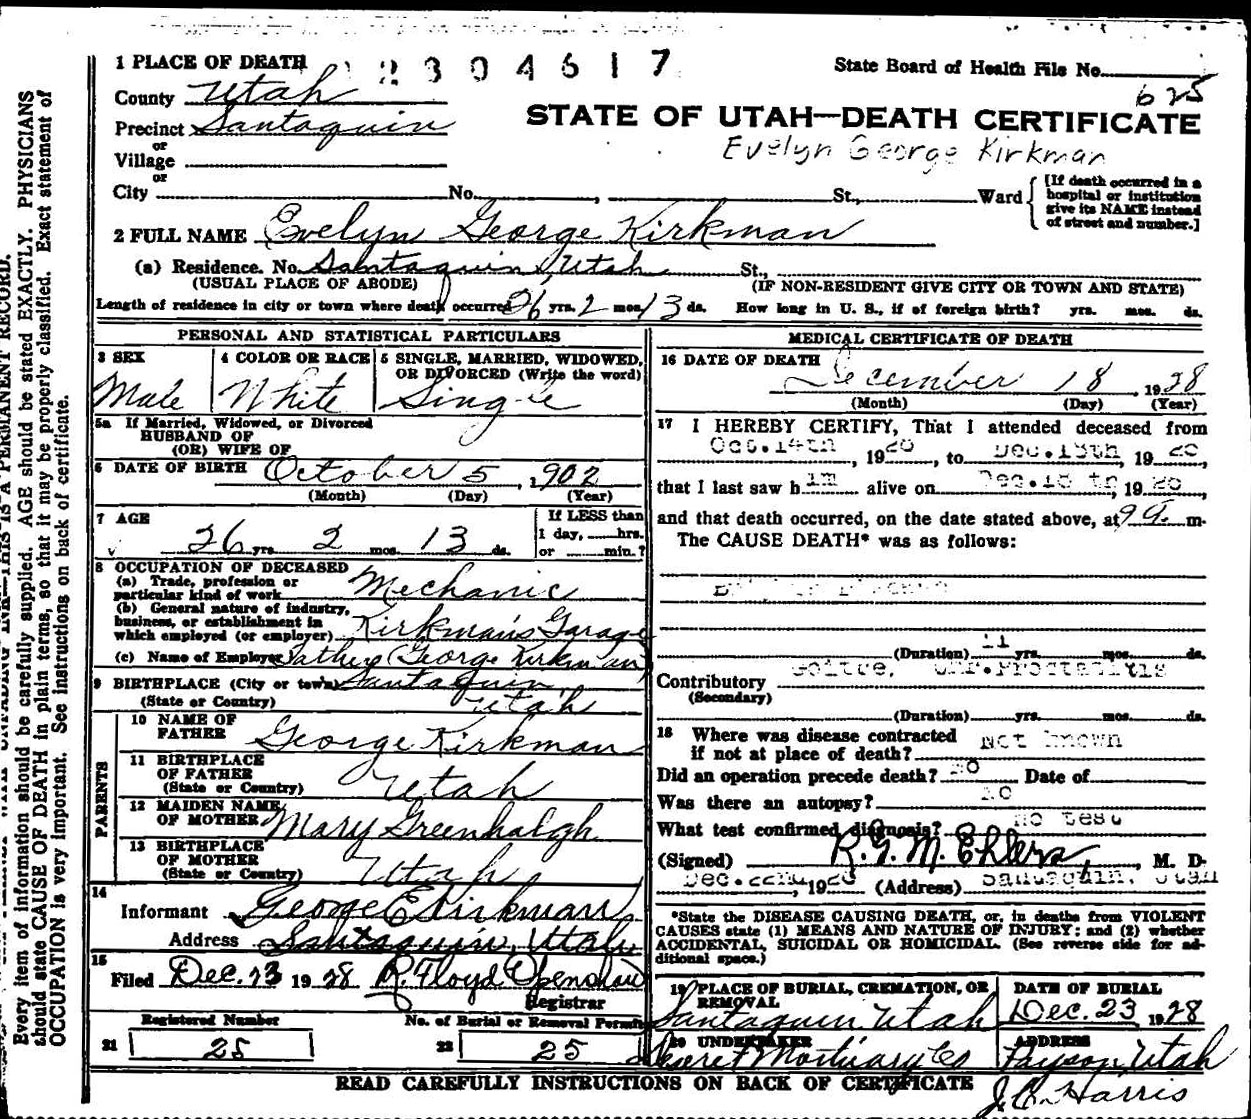 1 PLACE OF DEATH 2304617
State Board of Health File No. 625
County Utah
STATE OF UTAH—DEATH CERTIFICATE
Precinct Santaquin
Evelyn George Kirkman
or
Village
or
City No. , St., Ward
[If death occurred in a hospital or institution give its NAME instead of street and number.]
2 FULL NAME Evelyn George Kirkman
(a) Residence. No. Santaquin, Utah St.,
(USUAL PLACE OF ABODE) (IF NON-RESIDENT GIVE CITY OR TOWN AND STATE)
Length of residence in city or town where death occurred 26 yrs. 2 mos. 13 ds. How long in U. S., if of foreign birth? yrs. mos. ds.
PERSONAL AND STATISTICAL PARTICULARS
3 SEX 4 COLOR OR RACE 5 SINGLE, MARRIED, WIDOWED,
OR DIVORCED (Write the word)
Male White Single
5a If Married, Widowed, or Divorced
HUSBAND OF
(OR) WIFE OF
6 DATE OF BIRTH October 5, 1902
(Month) (Day) (Year)
7 AGE 26 yrs. 2 mos. 13 ds.
If LESS than
1 day, hrs.
or min.?
8 OCCUPATION OF DECEASED
(a) Trade, profession or
particular kind of work Mechanic
(b) General nature of industry,
business, or establishment in
which employed (or employer) Kirkman's Garage
(c) Name of Employer Father (George Kirkman)
9 BIRTHPLACE (City or town) Santaquin,
(State or Country) Utah
PARENTS
10 NAME OF
FATHER George Kirkman
11 BIRTHPLACE
OF FATHER
(State or Country) Utah
12 MAIDEN NAME
OF MOTHER Mary Greenhalgh
13 BIRTHPLACE
OF MOTHER
(State or Country) Utah
14
Informant George E Kirkman
Address Santaquin, Utah
15
Filed Dec. 23 1928 R. Floyd Openshaw
Registrar
Registered Number No. of Burial or Removal Permit
21 25 22 25
MEDICAL CERTIFICATE OF DEATH
16 DATE OF DEATH
December 18, 1928
(Month) (Day) (Year)
17 I HEREBY CERTIFY, That I attended deceased from
Oct.14th, 1928, to Dec.18th 1928,
that I last saw him alive on Dec.18 th, 1928,
and that death occurred, on the date stated above, at 9 a. m.
The CAUSE DEATH* was as follows:
(Duration) 11 yrs. mos. ds.
Contributory Goitre, Chr.Prostatitis
(Secondary)
(Duration) yrs. mos. ds.
18 Where was disease contracted
if not at place of death? Not known
Did an operation precede death? NO Date of
Was there an autopsy? NO
What test confirmed diagnosis? No test
(Signed) R.G.M. Ehlers, M. D.
Dec.22nd, 1928 (Address) Santaquin, Utah
*State the DISEASE CAUSING DEATH, or, in deaths from VIOLENT
CAUSES state (1) MEANS AND NATURE OF INJURY; and (2) whether
ACCIDENTAL, SUICIDAL OR HOMICIDAL. (See reverse side for ad-
ditional space.)
19 PLACE OF BURIAL, CREMATION, OR
REMOVAL
Santaquin Utah
DATE OF BURIAL
Dec. 23 1928
20 UNDERTAKER
Deseret Mortuary Co
ADDRESS
Payson, Utah
READ CAREFULLY INSTRUCTIONS ON BACK OF CERTIFICATE
J. C. Harris
THIS IS A PERMANENT RECORD.
Every item of information should be carefully supplied. AGE should be stated EXACTLY. PHYSICIANS
should state CAUSE OF DEATH in plain terms, so that it may be properly classified. Exact statement of
OCCUPATION is very important. See instructions on back of certificate.